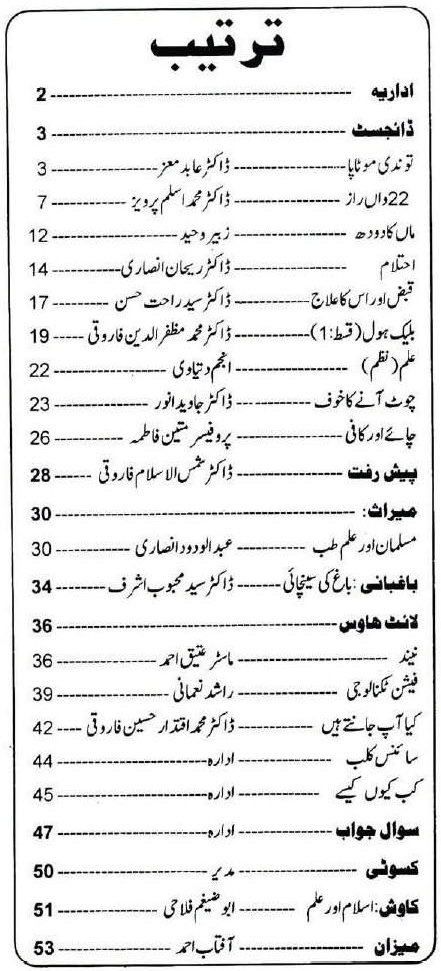 ترتیب
اداریہ ------------------------ 2
ڈائجسٹ ------------------------ 3
توندی موٹاپا ------------ ڈاکٹر عابد معز ------------ 3
22واں راز ------------ ڈاکٹر محمد اسلم پرویز ------------ 7
ماں کا دودھ ------------ زبیر وحید ------------ 12
احتلام ------------ ڈاکٹر ریحان انصاری ------------ 14
قبض اور اس کا علاج ------------ ڈاکٹر سید راحت حسن ------------ 17
بلیک ہول (قسط:1) ------------ ڈاکٹر محمد مظفر الدین فاروقی ------------ 19
علم (نظم) ------------ انجم دتیاوی ------------ 22
چوٹ آنے کا خوف ------------ ڈاکٹر جاوید انور ------------ 23
چائے اور کافی ------------ پروفیسر متین فاطمہ ------------ 26
پیش رفت ------------ ڈاکٹر شمس الاسلام فاروقی ------------ 28
میراث: ------------------------ 30
مسلمان اور علم طب ------------ عبدالودود انصاری ------------ 30
باغبانی: باغ کی سینچائی ------------ ڈاکٹر سید محبوب اشرف ------------ 34
لائٹ ھاوس ------------------------ 36
نیند ------------ ماسٹر عتیق احمد ------------ 36
فیشن ٹکنالوجی ------------ راشد نعمانی ------------ 39
کیا آپ جانتے ہیں ------------ ڈاکٹر محمد اقتدار حسین فاروقی ---- 42
سائنس کلب ------------ ادارہ ------------ 44
کب کیوں کیسے ------------ ادارہ ------------ 45
سوال جواب ------------ ادارہ ------------ 47
کسوٹی ------------ مدیر ------------ 50
کاوش: اسلام اور علم ------------ ابوضیغم فلاحی ------------ 51
میزان ------------ آفتاب احمد ------------ 53